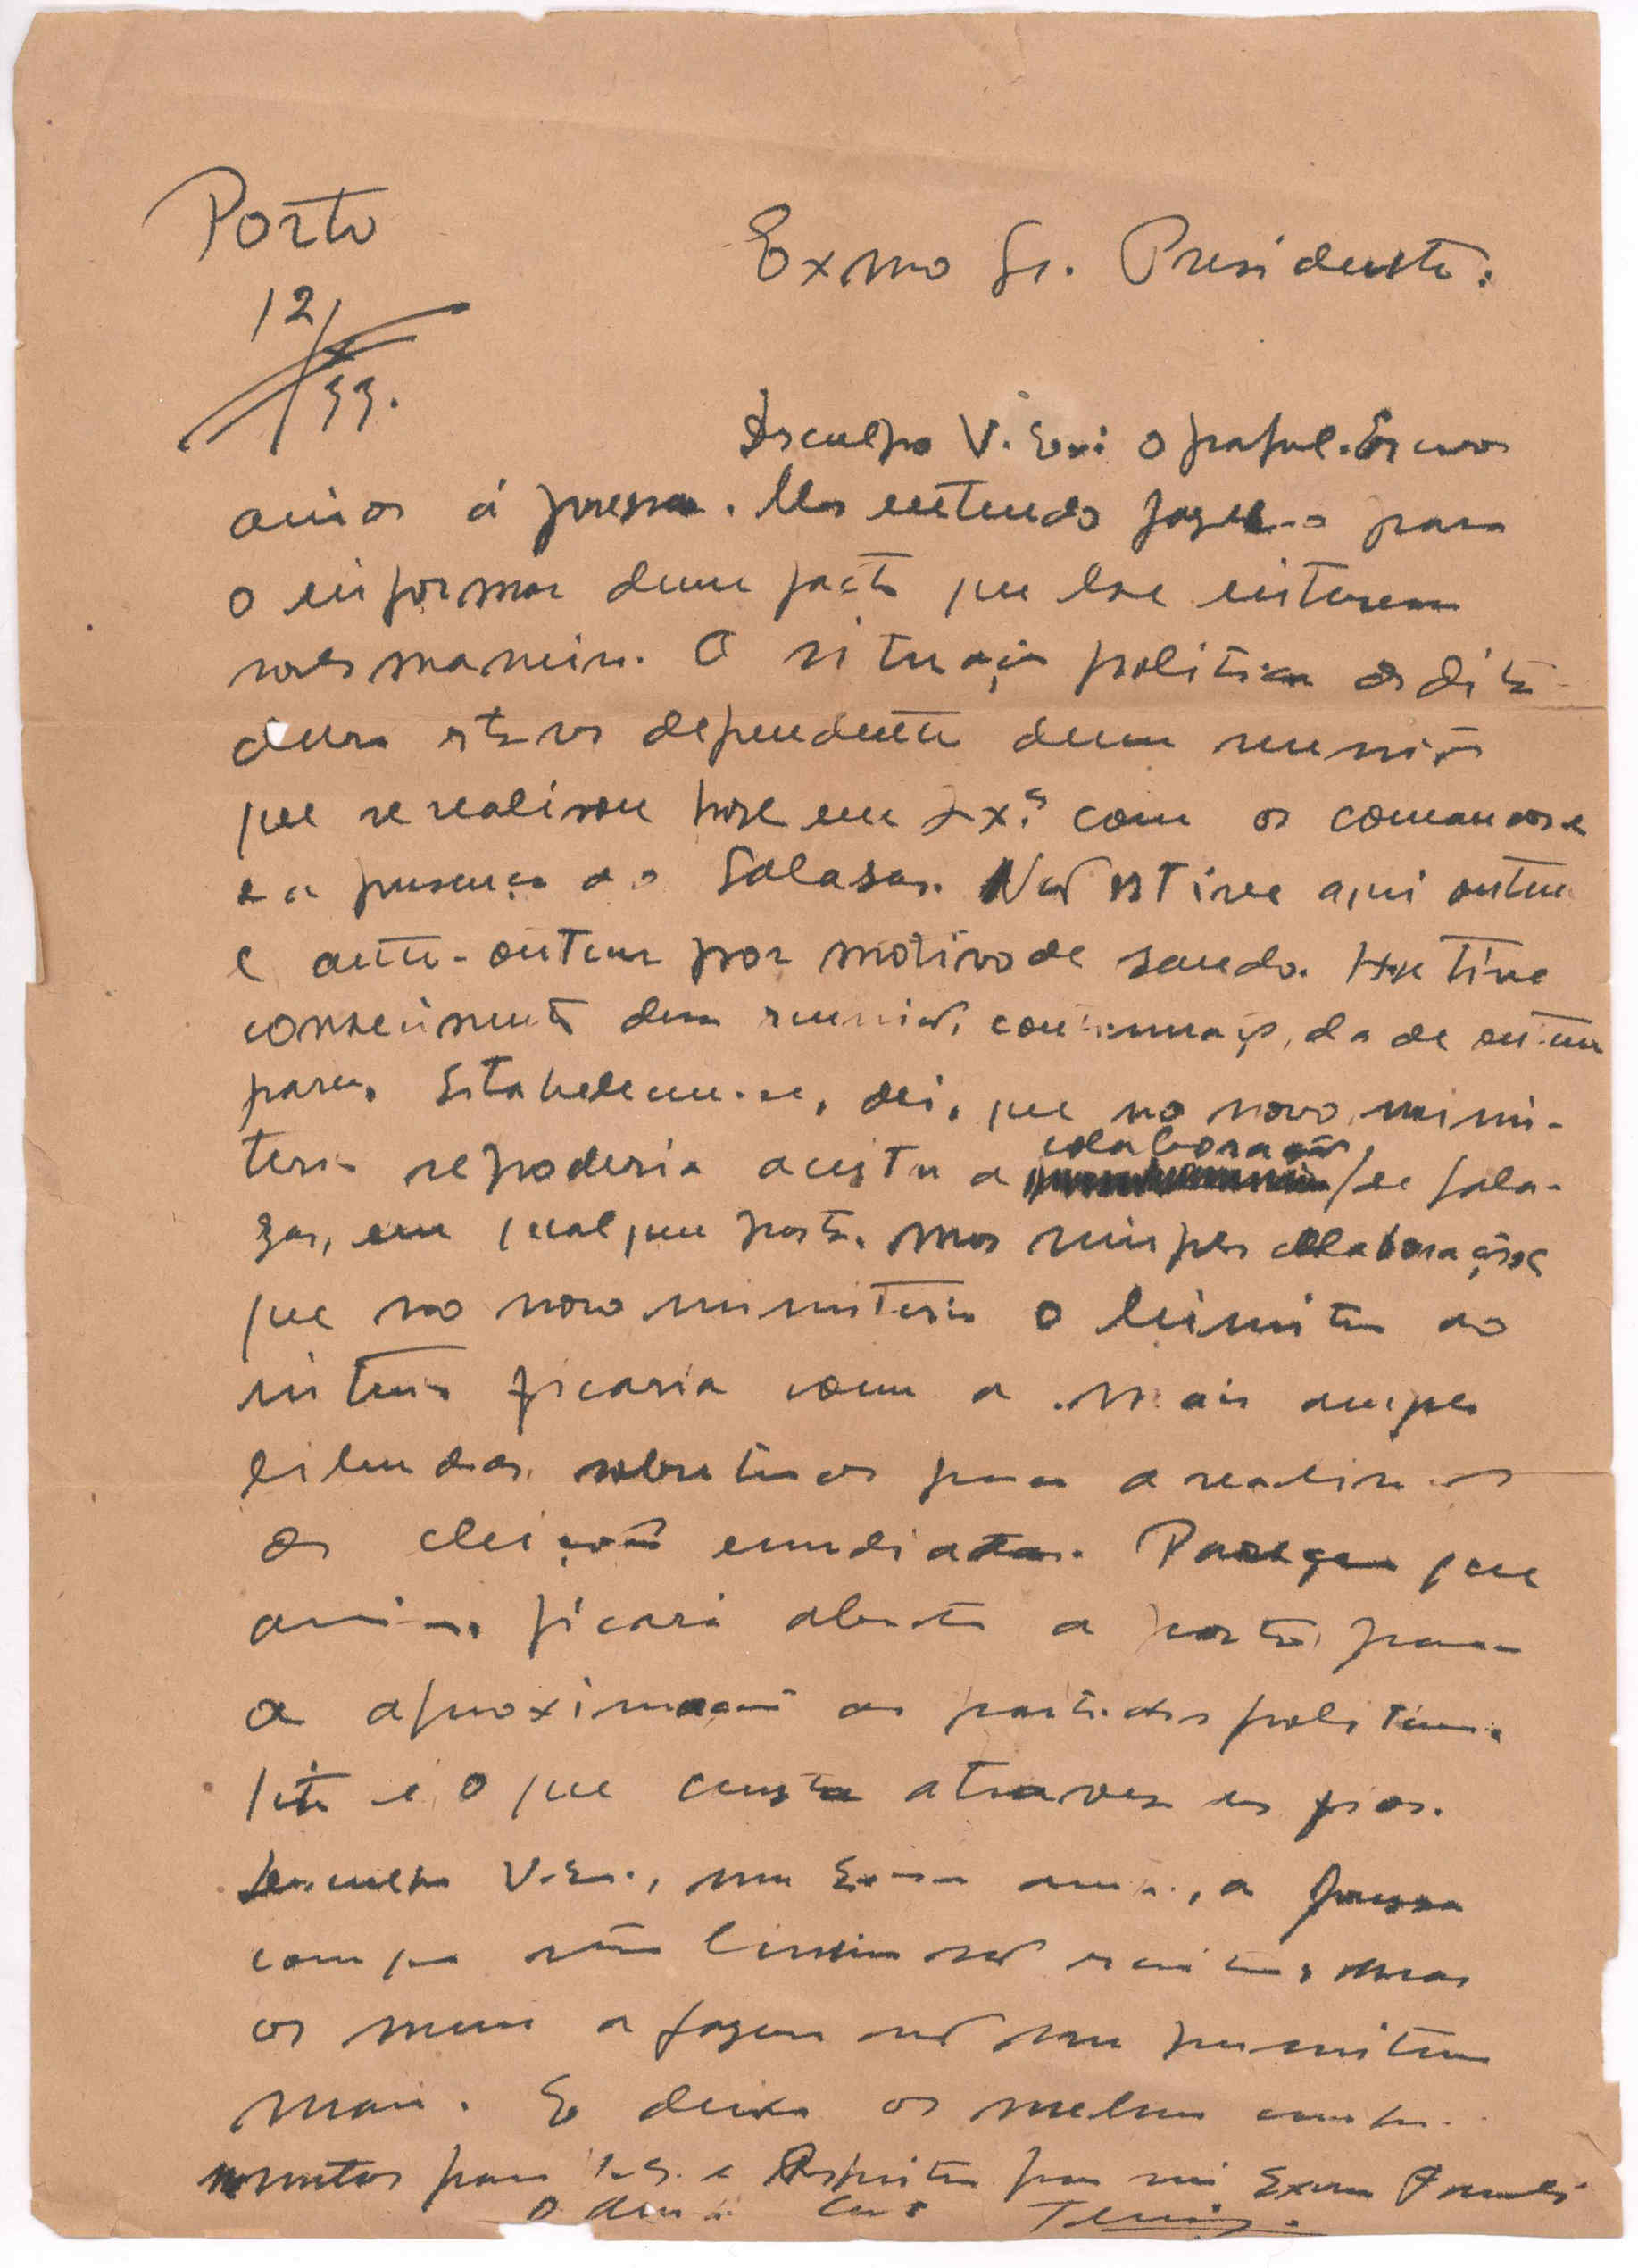 Porto
12/X/33.
Exmo Sr. Presidente:
Desculpe V. Ex.ª o papel. Escrevo
á pressa. Mas entendo fazel-o para
o informar dum facto que lhe interessa
A situação politica da dita-
dura estava dependente duma reunião
que se realisou hoje em Lx.ª com os comandos
e a presença do Salasar. Não estive aqui ontem
e ante-ontem por motivo de saude. Hoje tive
conhecimento duma reunião, continuação da de ontem
para. Estabeleceu-se, ahi, que no novo minis-
terio se poderia aceitar a colaboração de Sala-
zar, em qualquer pasta. Mas simples colaboração e
que no novo ministerio o ministro do
interior ficaria com a mais ampla
liberdade sobretudo para a realisação
de eleições imediatas. Parece que
assim ficará aberta a porta para
a aproximação dos partidos politicos.
Isto é o que consta atravez
Desculpe V. Ex., meu Exmo amigo, a pressa
com que estas linhas são escritas, mas
os meus afazeres não me permitem
mais. E deixo os melhores cumpri-
mentos para V. E. e Respeitos para sua Exma Familia